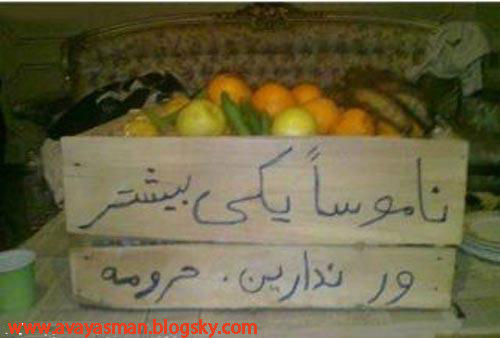 ناموساً یکی بیشتر
ور ندارین. حرومه
www.avayasman.blogsky.com